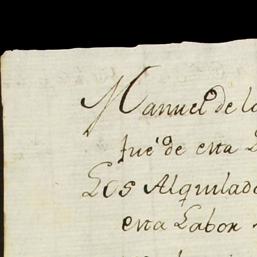 Manuel de la
fué de esta
Los Alquilad
esta Labor